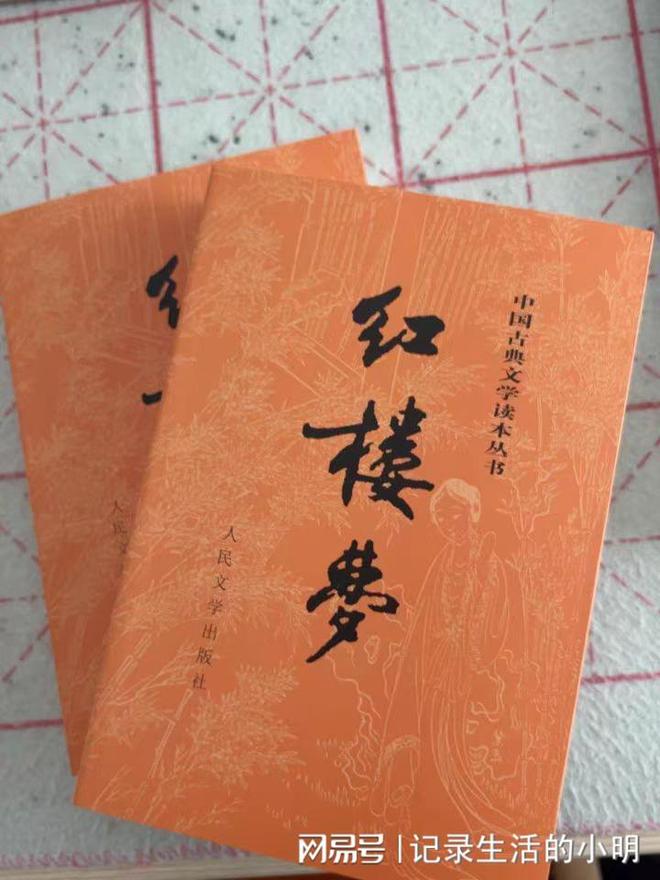 中国古典文学读本丛书
红楼梦
人民文学出版社
红
人民文
网易号 | 记录生活的小明